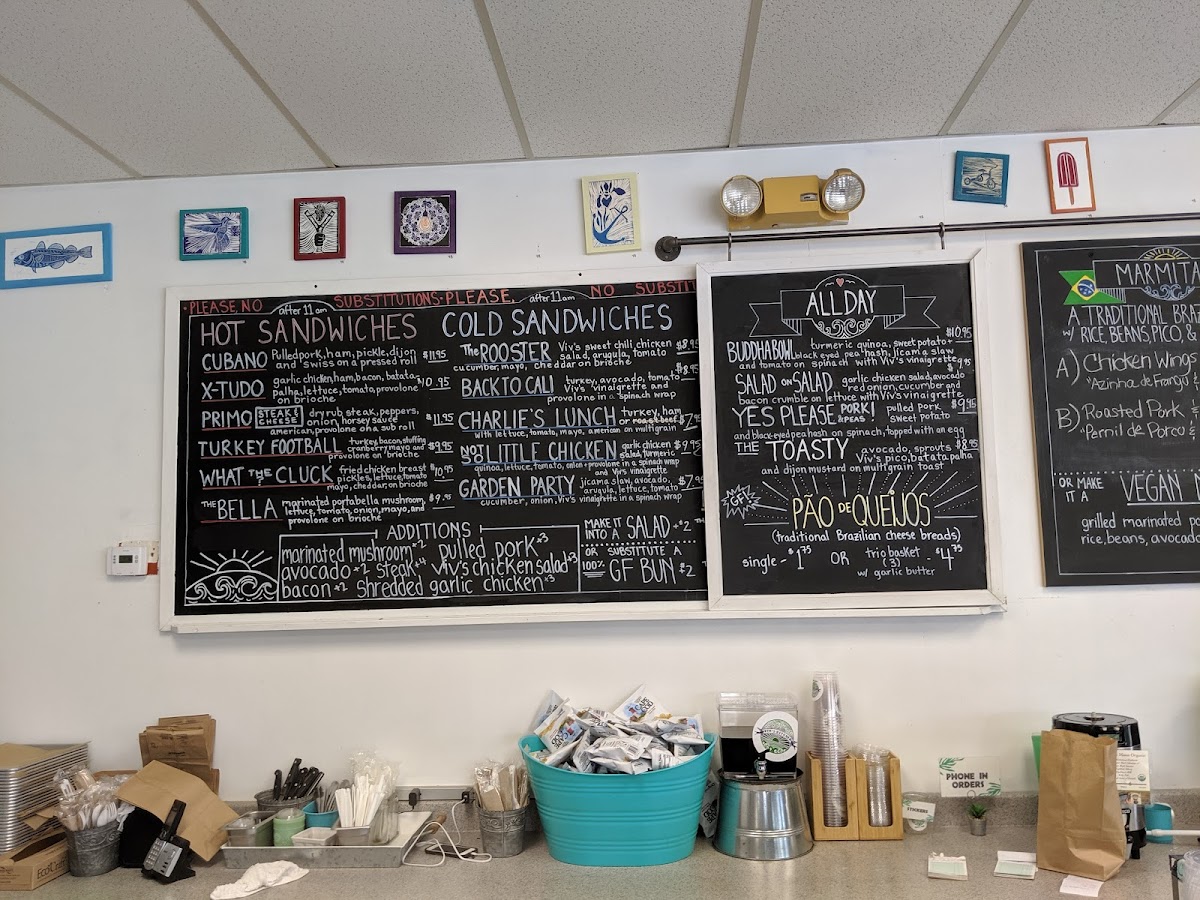 PLEASE NO SUBSTITUTIONS-PLEASE. NO SUBSTIT
after 11 am
HOT SANDWICHES
CUBANO Pulled pork, ham, pickle, dijon $11.95
and swiss on a pressed roll
X-TUDO garlic chicken, ham, bacon, batata- 10.95
palha, lettuce, tomato, provolone
on brioche
PRIMO STEAK & CHEESE dry rub steak, peppers, $11.95
onion, horsey sauce
american, provolone on a sub roll
TURKEY FOOTBALL turkey, bacon, stuffing $9.95
cranberry mayo and
provolone on brioche
WHAT THE CLUCK fried chicken breast $10.95
pickles, lettuce, tomato
mayo, cheddar, on brioche
THE BELLA marinated portabella mushroom, $9.95
lettuce, tomato, onion, mayo, and
provolone on brioche
after 11 am
COLD SANDWICHES
The ROOSTER Viv's sweet chili chicken $8.95
salad, arugula, tomato
cucumber, mayo, cheddar on brioche
BACK TO CALI turkey, avocado, tomato $8.95
Viv's vinaigrette and
provolone in a spinach wrap
CHARLIE'S LUNCH turkey, ham $7.95
or roast beef
with lettuce, tomato, mayo, american on multigrain
NO. 8 LITTLE CHICKEN garlic chicken $9.95
salad, turmeric
quinoa, lettuce, tomato, onion + provolone in a spinach wrap
and Viv's vinaigrette
GARDEN PARTY jicama slaw, avocado, $7.95
arugula, lettuce, tomato
cucumber, onion, Viv's vinaigrette in a spinach wrap
ADDITIONS
marinated mushroom +2 pulled pork +3
avocado +2 steak +4 viv's chicken salad +3
bacon +2 shredded garlic chicken +3
MAKE IT
INTO A SALAD +$2
OR SUBSTITUTE A
100% GF BUN +$2
ALL DAY
$10.95
BUDDHA BOWL turmeric quinoa, sweet potato +
black eyed pea hash, jicama slaw
and tomato on spinach with Viv's vinaigrette
$9.95
SALAD ON SALAD garlic chicken salad, avocado
red onion, cucumber and
bacon crumble on lettuce with Viv's vinaigrette
YES PLEASE PORK! & PEAS! pulled pork $9.95
sweet potato
and black-eyed pea hash on spinach, topped with an egg
THE TOASTY avocado, sprouts $8.95
Viv's pico, batata palha
and dijon mustard on multigrain toast
GF!
PÃO DE QUEIJOS
(traditional Brazilian cheese breads)
single - $1.75 OR trio basket $4.75
(3)
w/ garlic butter
MARMITA
A TRADITIONAL BRA
w/ RICE, BEANS, PICO, &
A) Chicken Wings
"Azinha de Frango
B) Roasted Pork
"Pernil de Porco
OR MAKE
IT A VEGAN
grilled marinated po
rice, beans, avocado
PHONE IN
ORDERS
STICKERS